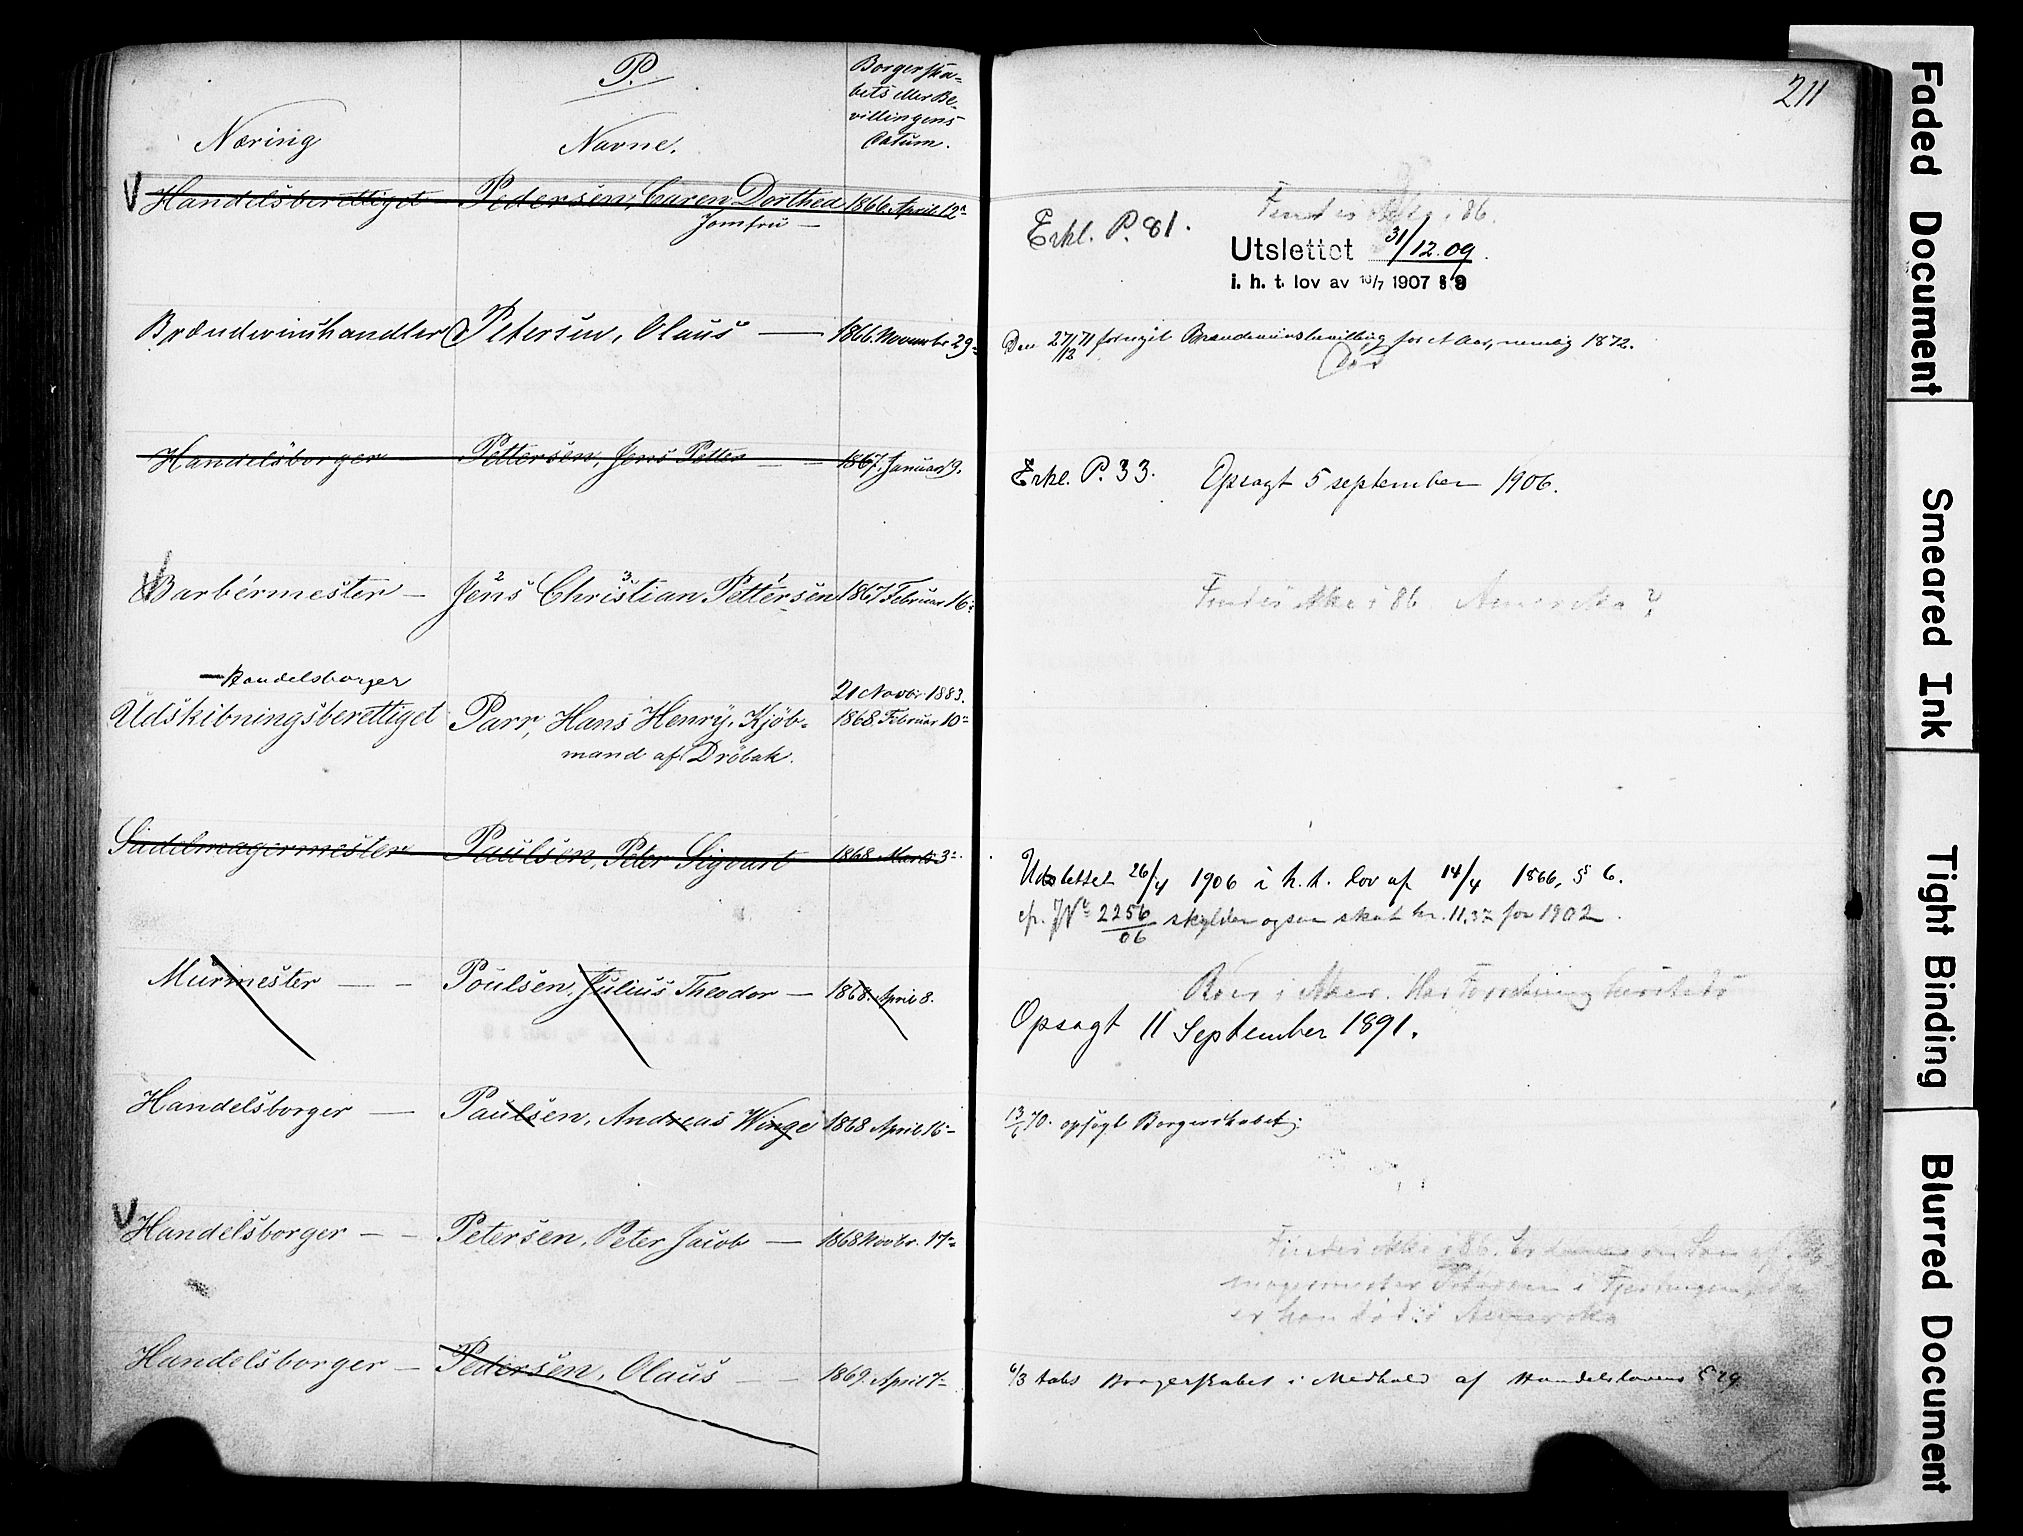 P.
Næring
Navne.
Borgerska-
bets eller Be-
villingens
Datum.
211
Handelsberettiget Pedersen, Caren Dorthea 1866 April 12
Jomfru —
Erkl. P. 81.
Findes ikke i 86.
Utslettet 31/12.09.
i. h. t. lov av 16/7 1907 § 9
Brændevinshandler Petersen, Olaus — 1866. Novembr 29
Den 27/12 71 fornyet Brændevinsbevilling for et Aar, nemlig 1872.
Død
Handelsborger Pettersen, Jens Petter — — 1867. Januar 9.
Erkl. P. 33. Opsagt 5 september 1906.
Barbérmester — Jens Christian Pettersen 1867 Februar 16
2 3 1
Findes ikke i 86. Amerika?
— Handelsborger 21 Novbr 1883.
Udskibningsberettiget Parr, Hans Henry, Kjöb- 1868. Februar 10
mand af Dröbak.
Sadelmagermester Paulsen, Peter Sigvart 1868 Marts 3
Udslettet 26/4 1906 i h. t. lov af 14/4 1866, § 6.
cfr. JNo 2256/06 skylder ogsaa skat kr. 11,37 for 1902.
Murmester — — Poulsen, Julius Theodor — 1868. April 8.
Boer i Aker. Har Forretning hersteds
Opsagt 11 September 1891.
Handelsborger — Paulsen, Andreas Winge 1868 April 16
13/6 70. opsagt Borgerskabet.
Handelsborger — — Petersen, Peter Jacob — 1868 Novbr. 17
Findes ikke i 86. Er en Søn af
magermester Petersen i
er han død i Amerika
Handelsborger — Pedersen, Olaus — — 1869. April 7
6/3 tabt Borgerskabet i Medhold af Handelslovens § 29
Faded Document
Smeared Ink
Tight Binding
Blurred Document